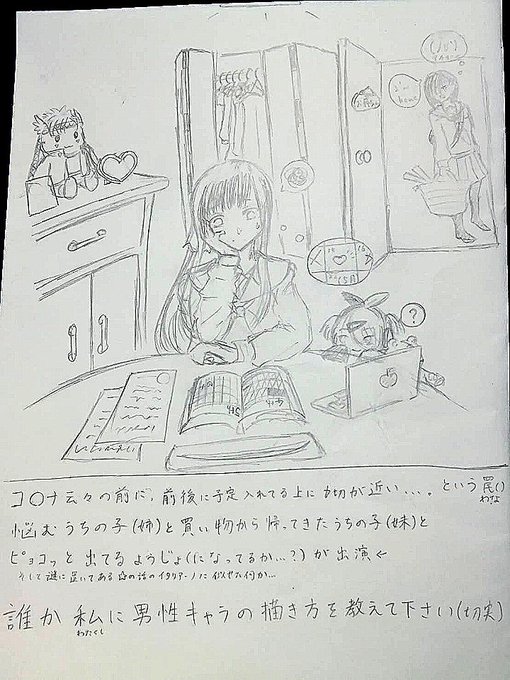 I'm home
お肉
15日
?
4/5
コ〇ナ云々の前に、前後に予定入れてる上に 〆切が近い...。という罠()
わな
悩むうちの子(姉)と買い物から帰ってきたうちの子(妹)と
ピョコッと出てるようじょ(になってるか...?)が出演←
そして謎に置いてある
誰か私に男性キャラの描き方を教えて下さい(切実)
わたくし